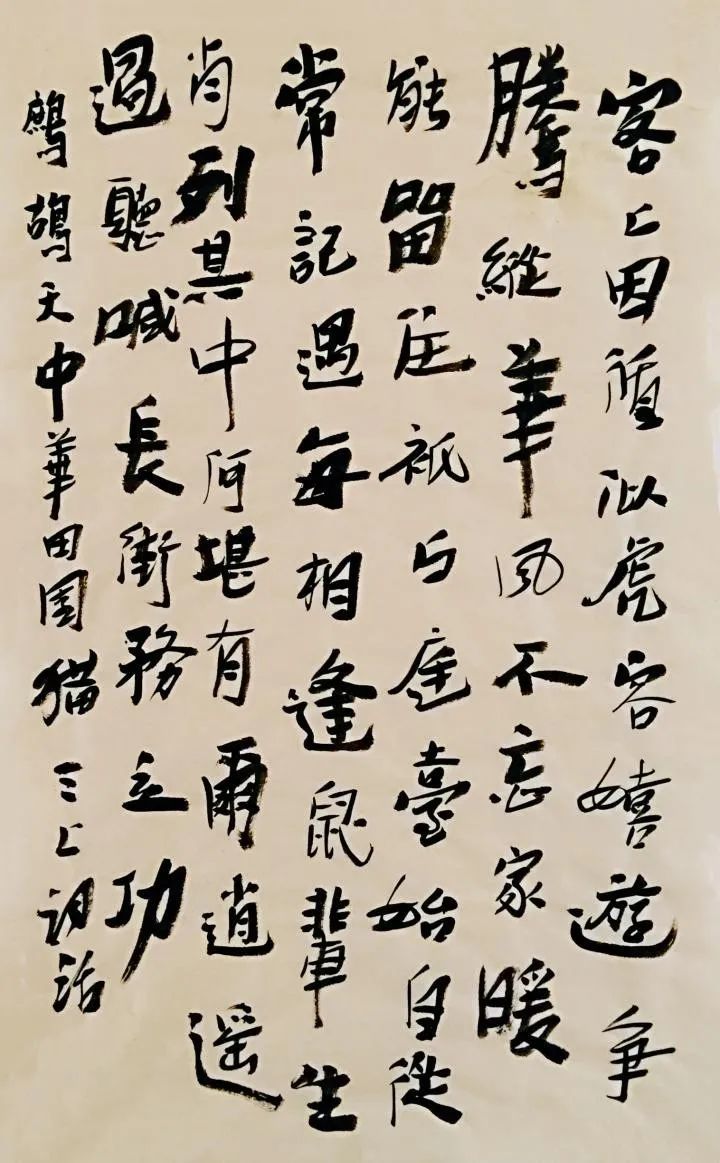 客上因似虎容嬉遊爭
騰縱華風不忘家暖
能留住祇与庭臺始自從
常記遇每相逢鼠輩生
肖列其中何堪有爾逍遥
過聽喊長街務立功
鷓鴣天中華田園貓三上詞話